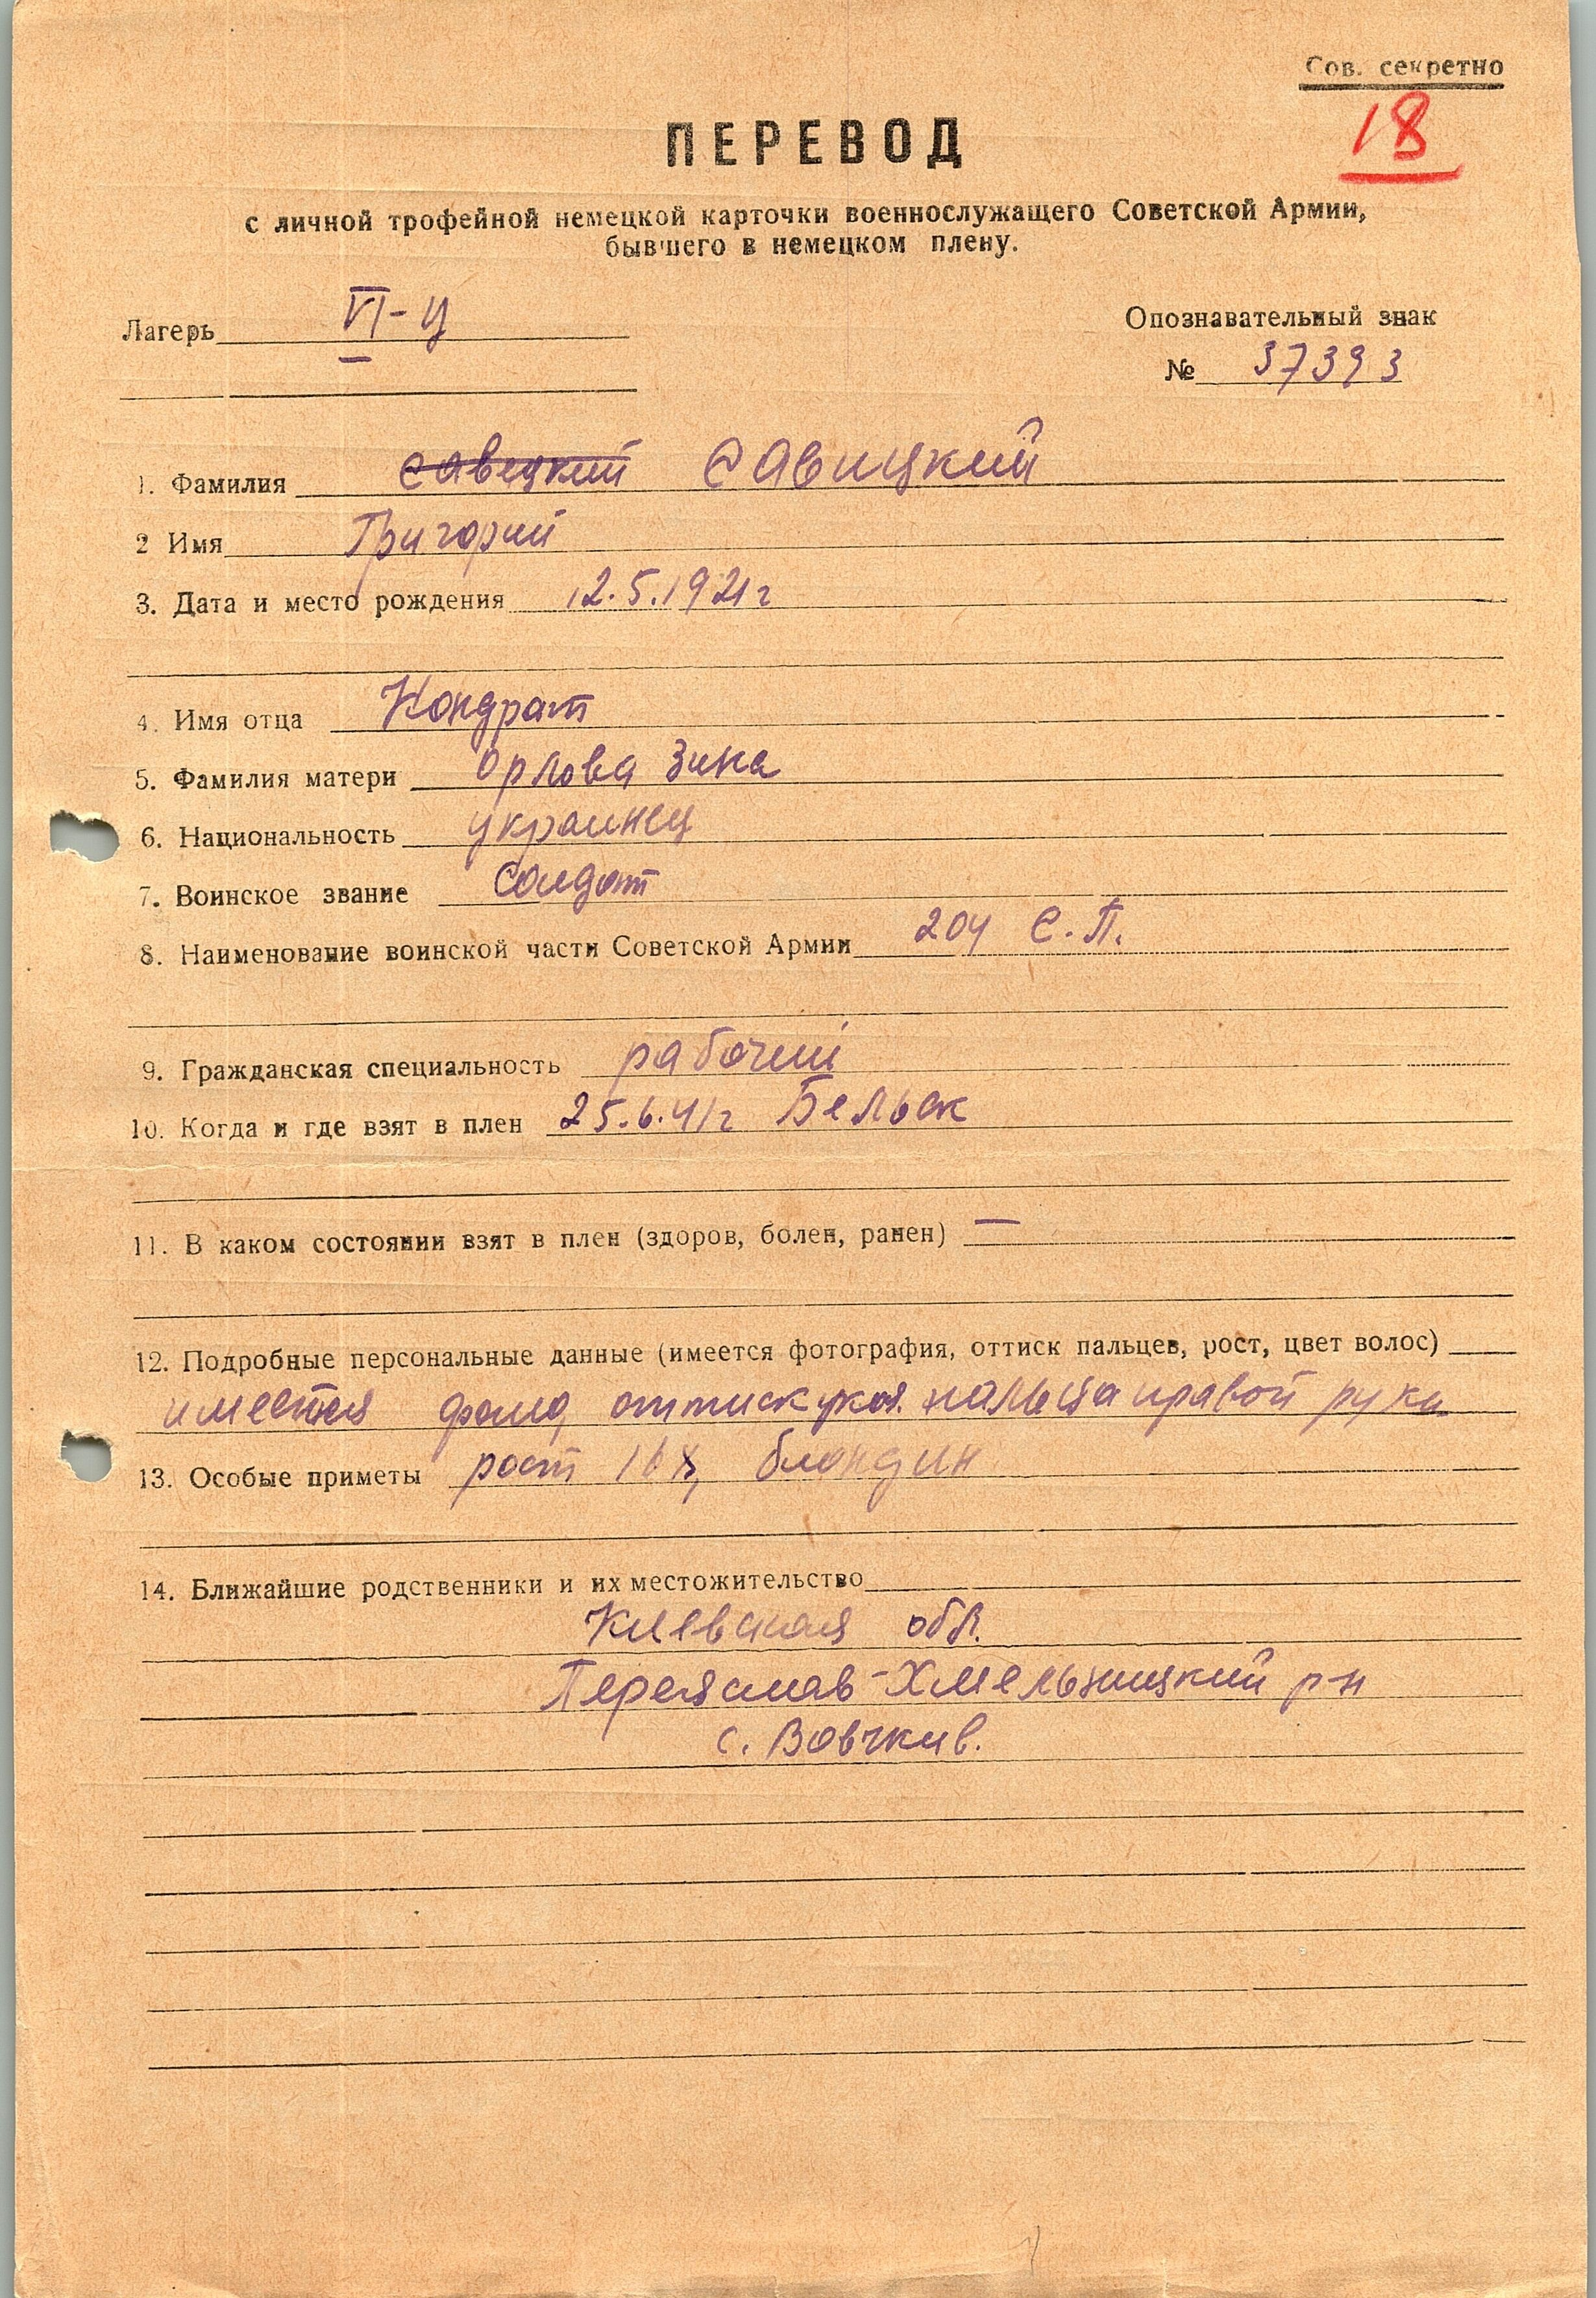 Сов. секретно
18
ПЕРЕВОД
с личной трофейной немецкой карточки военнослужащего Советской Армии,
бывшего в немецком плену.
Лагерь VI-Ц
Опознавательный знак
№ 37393
1. Фамилия Савецкий Савицкий
2 Имя Григорий
3. Дата и место рождения 12.5.1921г
4. Имя отца Кондрат
5. Фамилия матери Орлова Зина
6. Национальность украинец
7. Воинское звание Солдат
8. Наименование воинской части Советской Армии 204 С.П.
9. Гражданская специальность рабочий
10. Когда и где взят в плен 25.6.41г Бельск
11. В каком состоянии взят в плен (здоров, болен, ранен) —
12. Подробные персональные данные (имеется фотография, оттиск пальцев, рост, цвет волос)
имеется фото, оттиск указ. пальца правой руки
13. Особые приметы рост блондин
14. Ближайшие родственники и их местожительство
Киевская обл.
Переяслав-Хмельницкий р-н
с. Вовчкив.